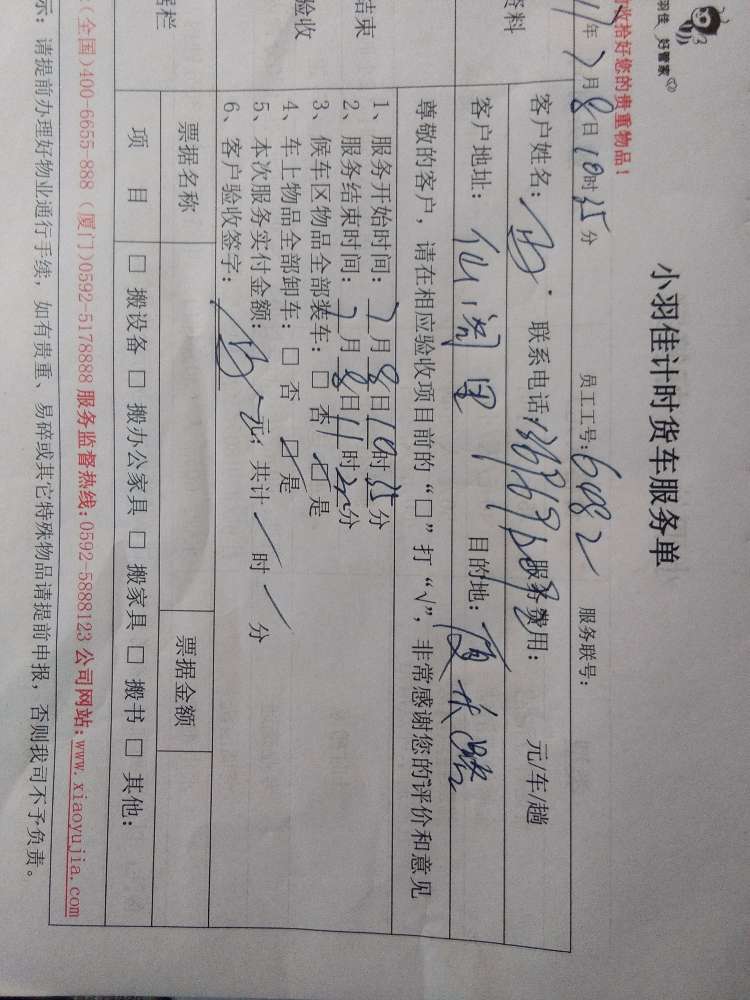 羽佳 好管家
收拾好您的贵重物品！
小羽佳计时货车服务单
年7月8日10时35分 员工工号: 6482 服务联号:
资料
客户姓名: 联系电话: 服务费用: 元/车/趟
客户地址: 仙阁里 目的地: 厦禾路
结束
验收
尊敬的客户，请在相应验收项目前的“□”打“√”，非常感谢您的评价和意见
1、服务开始时间: 7月8日10时35分
2、服务结束时间: 7月8日11时 分
3、候车区物品全部装车: □ 否 ☑ 是
4、车上物品全部卸车: □ 否 ☑ 是
5、本次服务实付金额: 元; 共计 / 时 / 分
6、客户验收签字:
据栏
票据名称 票据金额
项 目 □ 搬设备 □ 搬办公家具 □ 搬家具 □ 搬书 □ 其他:
:(全国)400-6655-888 (厦门)0592-5178888 服务监督热线:0592-5888123 公司网站:www.xiaoyujia.com
示: 请提前办理好物业通行手续，如有贵重、易碎或其它特殊物品请提前申报，否则我司不予负责。